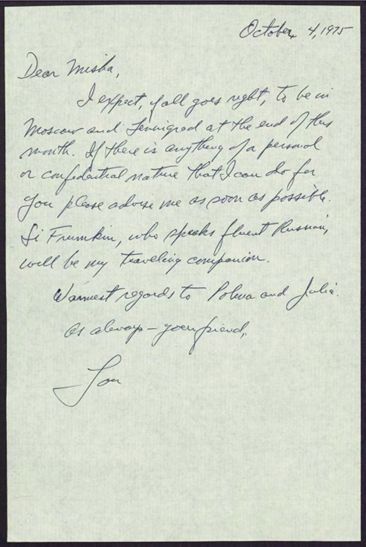 October 4, 1975
Dear Misha,
I expect, if all goes right, to be in
Moscow and Leningrad at the end of this
month. If there is anything of a personal
or confidential nature that I can do for
you please advise me as soon as possible.
Si Frumkin, who speaks fluent Russian,
will be my traveling companion.
Warmest regards to Polina and Julia.
As always - your friend,
Lou